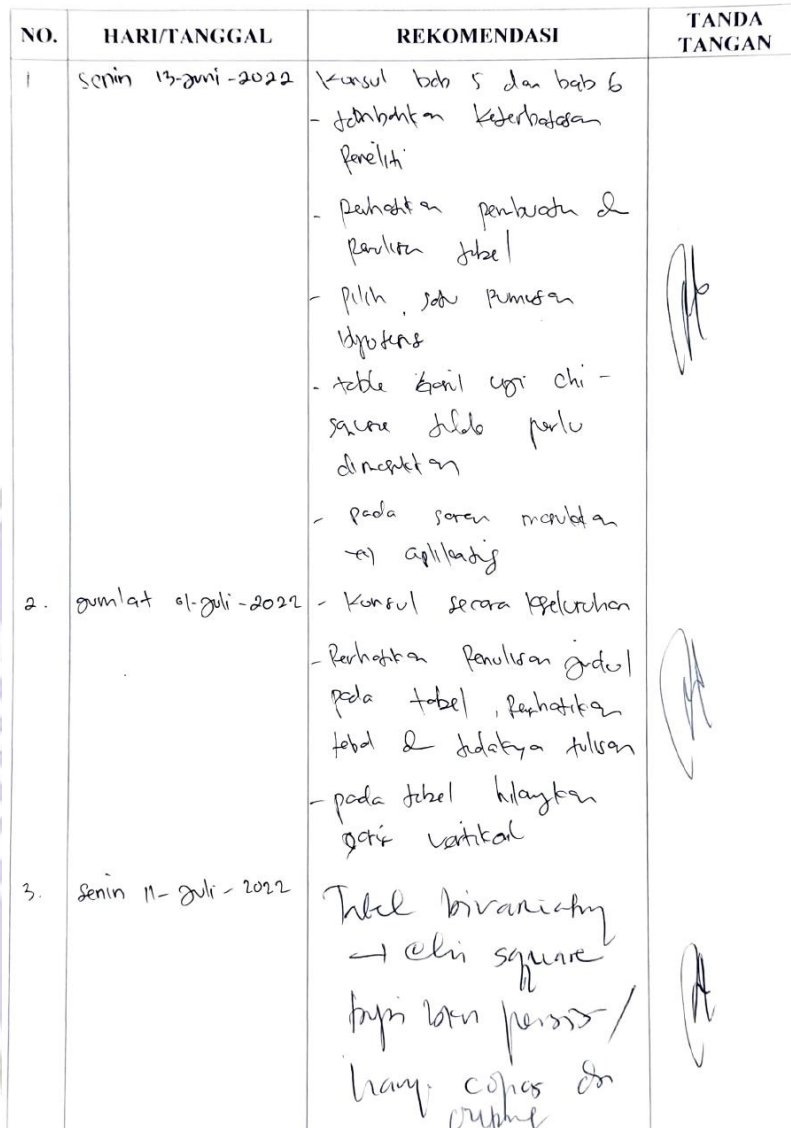 NO. HARI/TANGGAL REKOMENDASI TANDA TANGAN
1 Senin 13-Juni-2022 Konsul bab 5 dan bab 6
- tambahkan keterbatasan
Peneliti
- perhatikan pembuatan &
penulisan tabel
- pilih satu rumusan
hipotesis
- table hasil uji chi-
square tidak perlu
dimasukkan
- pada saran
aplikatif
2. Jum'at 01-Juli-2022 - Konsul secara keseluruhan
- Perhatikan Penulisan judul
pada tabel, Perhatikan
tebal & tidaknya tulisan
- pada tabel hilangkan
garis vertikal
3. Senin 11-Juli-2022 Tabel
→ Chi square
/
copas